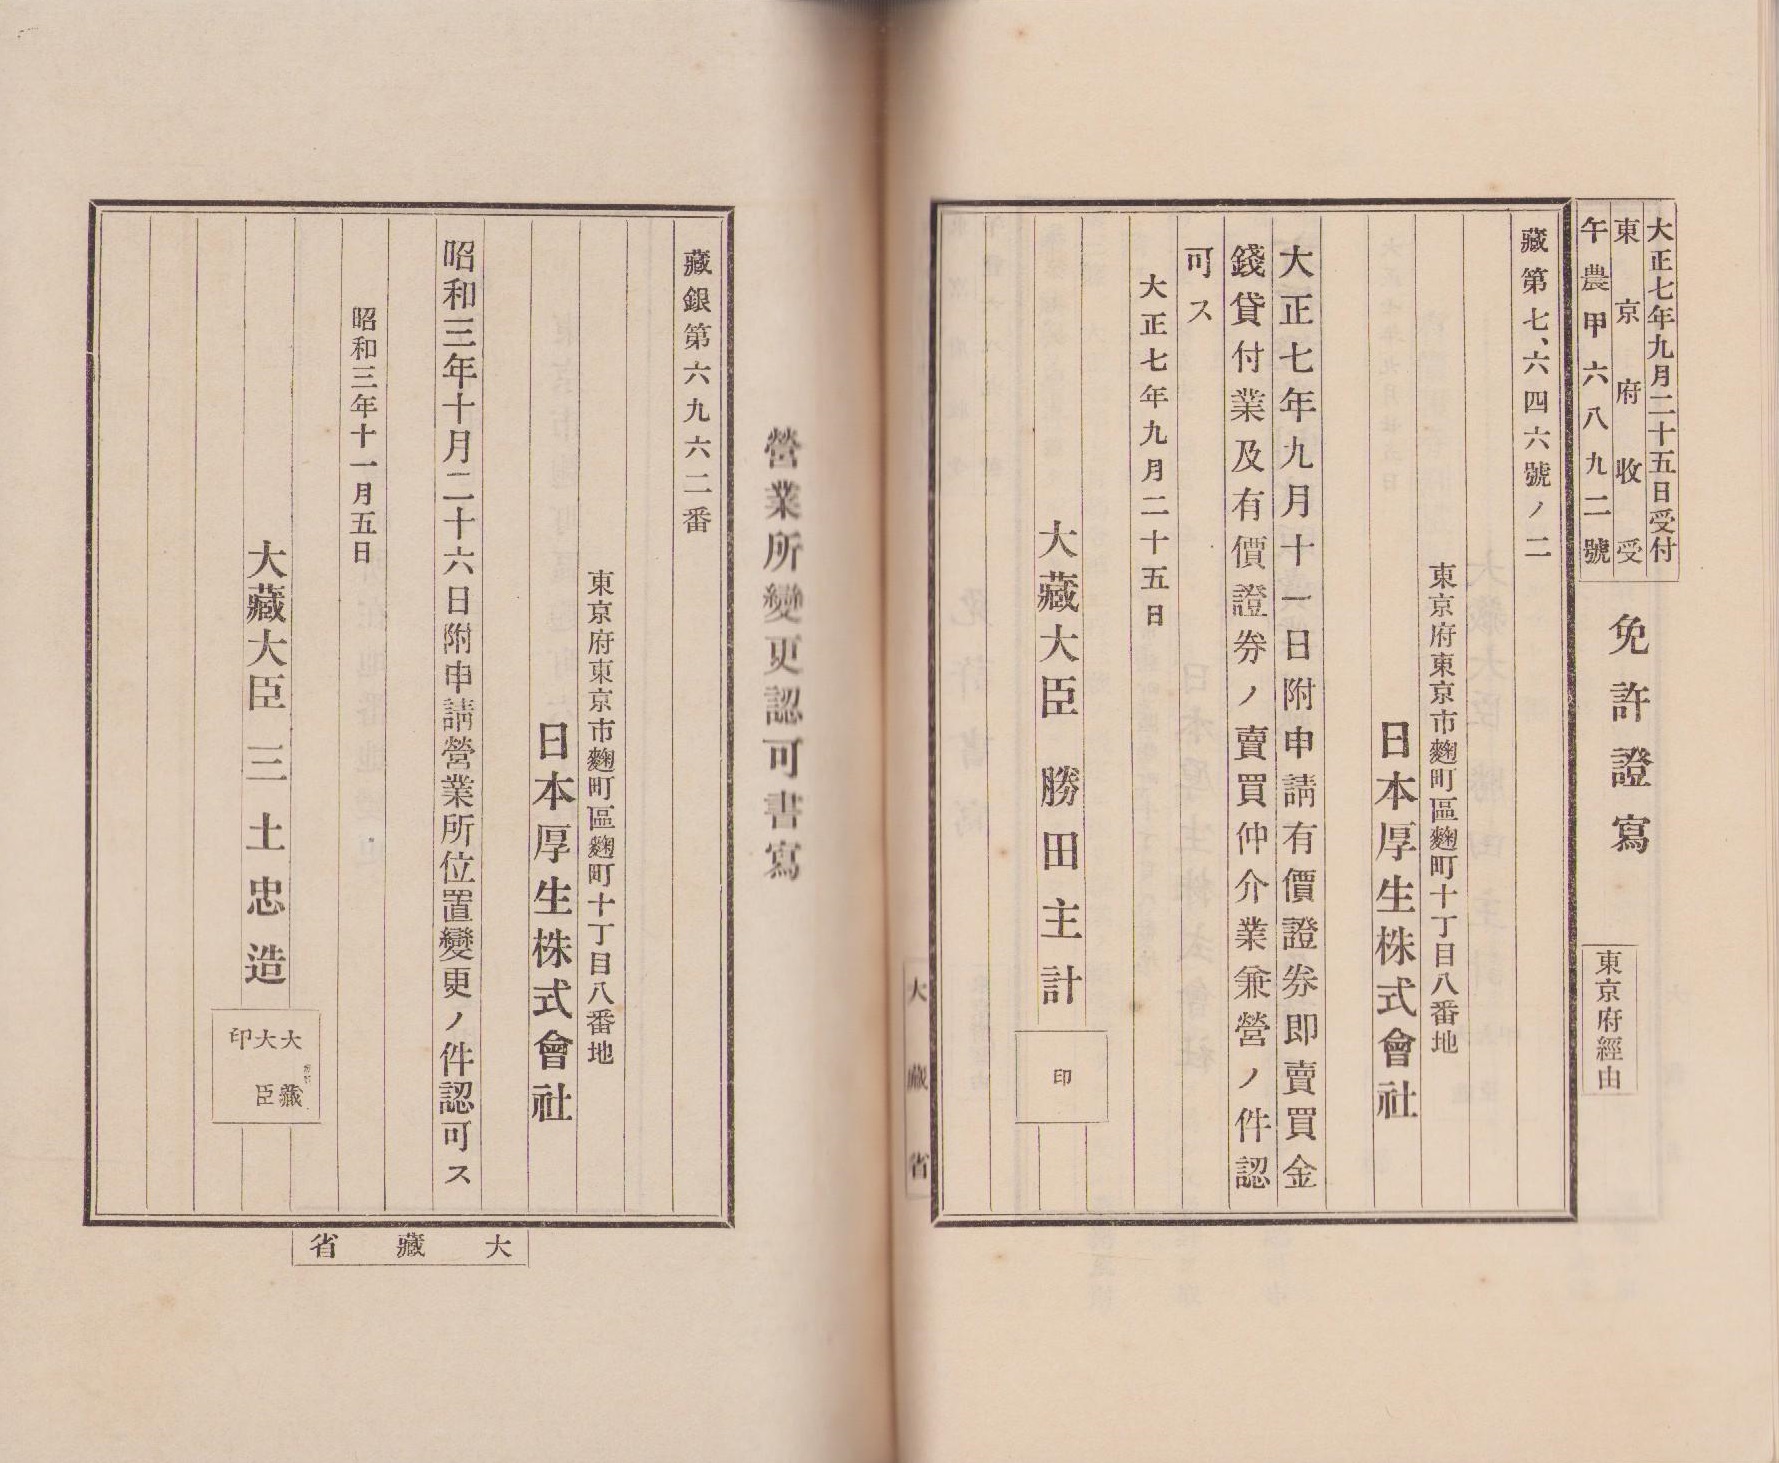 大正七年九月二十五日受付
東京府收受
午農甲六八九二號
免許證寫
東京府經由
藏第七、六四六號ノ二
東京府東京市麴町區麴町十丁目八番地
日本厚生株式會社
大正七年九月十一日附申請有價證券即賣買金
錢貸付業及有價證券ノ賣買仲介業兼營ノ件認
可ス
大正七年九月二十五日
大藏大臣 勝田主計
印
大藏省
營業所變更認可書寫
藏銀第六九六二番
東京府東京市麴町區麴町十丁目八番地
日本厚生株式會社
昭和三年十月二十六日附申請營業所位置變更ノ件認可ス
昭和三年十一月五日
大藏大臣 三土忠造
大藏
大臣
印
大藏省